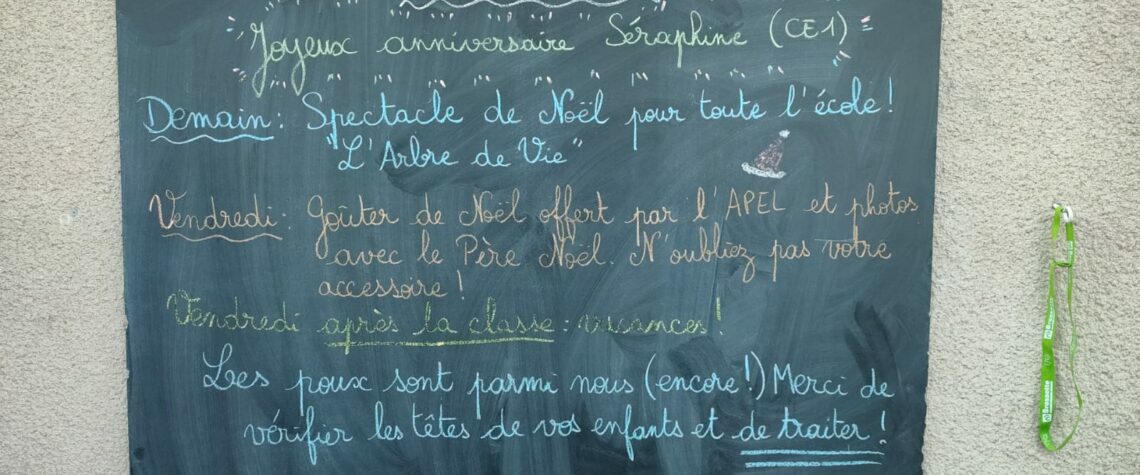 Joyeux anniversaire Séraphine (CE1)
Demain : Spectacle de Noël pour toute l'école !
"L'Arbre de Vie"
Vendredi : Goûter de Noël offert par l'APEL et photos
avec le Père Noël. N'oubliez pas votre
accessoire !
Vendredi après la classe : vacances !
Les poux sont parmi nous (encore !) Merci de
vérifier les têtes de vos enfants et de traiter !